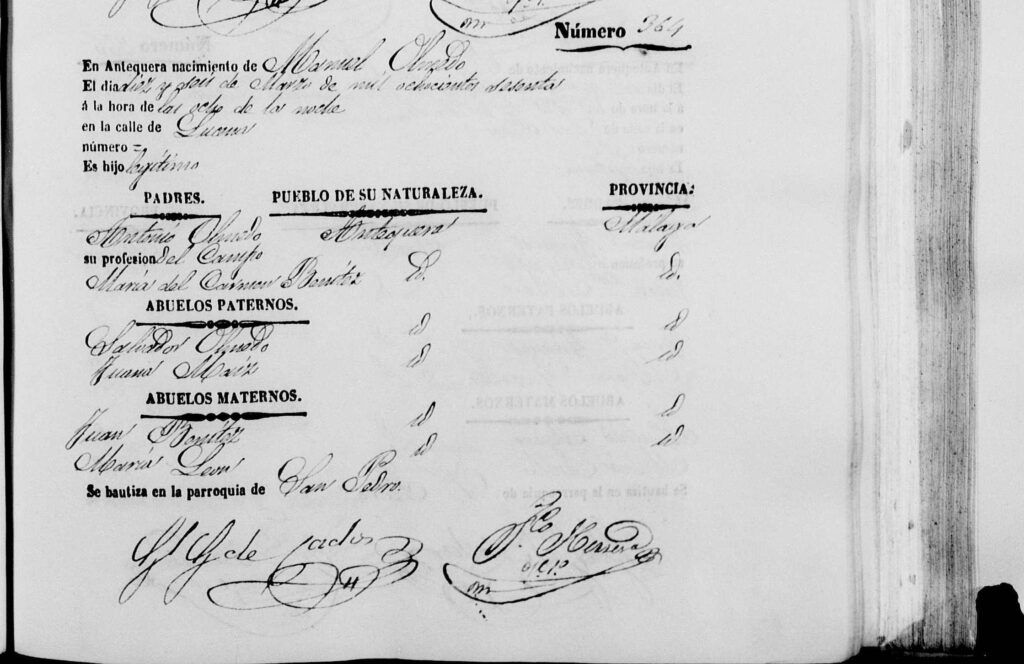 Número 364
En Antequera nacimiento de Manuel Olmedo
El dia diez y seis de Marzo de mil ochocientos sesenta
á la hora de las ocho de la noche
en la calle de Lucena
número =
Es hijo legítimo
PADRES. PUEBLO DE SU NATURALEZA. PROVINCIA:
Antonio Olmedo Antequera Málaga
su profesion del Campo
María del Carmen Benítez Id. Id.
ABUELOS PATERNOS.
Salvador Olmedo id id
Juana id id
ABUELOS MATERNOS.
Juan Benítez id id
María León id id
Se bautiza en la parroquia de San Pedro.
Fco Herrera